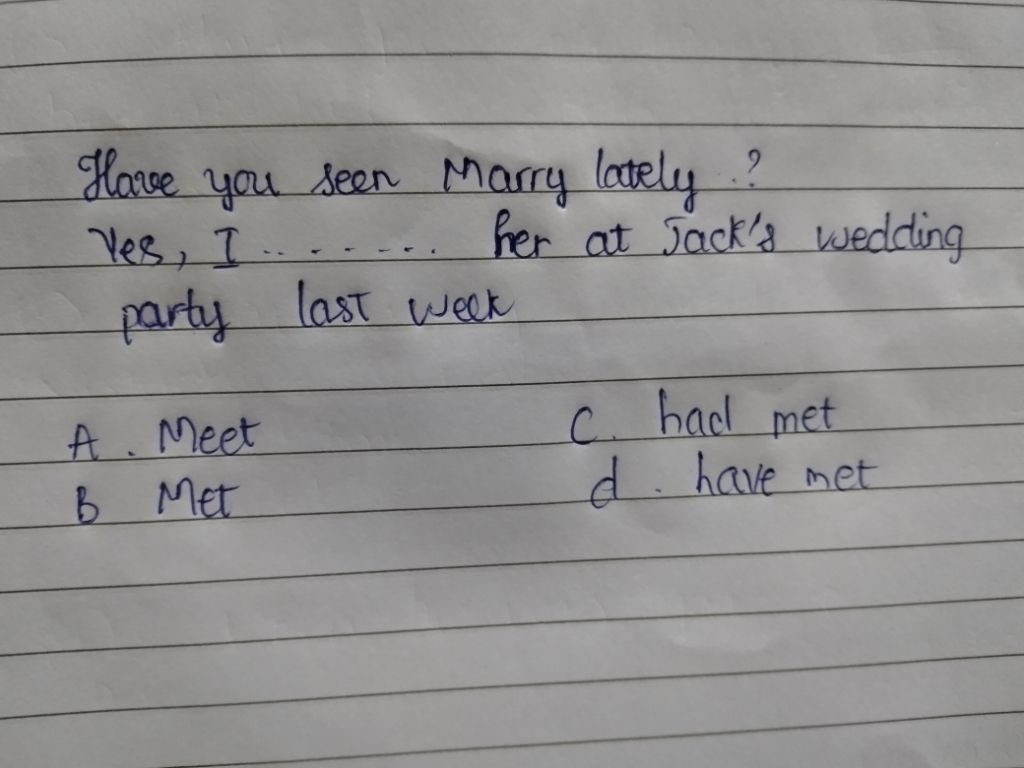 Have you seen Marry lately ?
Yes, I ........ her at Jack's wedding
party last week
A. Meet
C. had met
B Met
d. have met